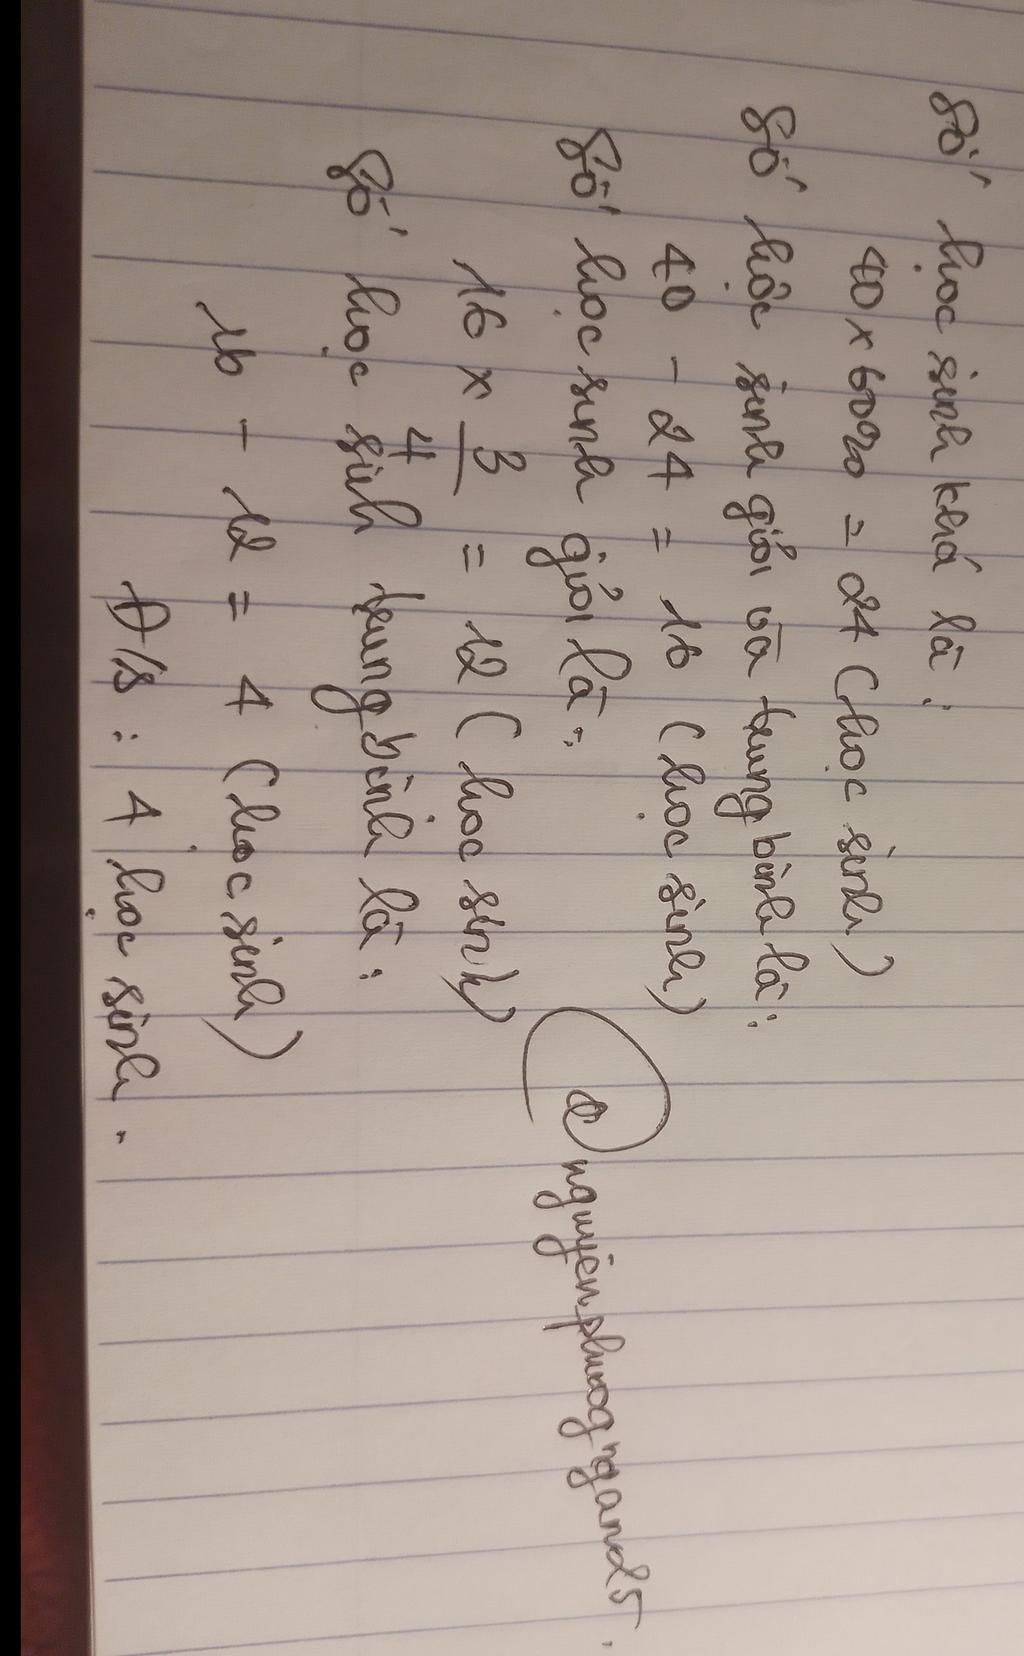 Số học sinh khá là :
40 x 60% = 24 (học sinh)
Số học sinh giỏi và trung bình là :
40 - 24 = 16 (học sinh)
Số học sinh giỏi là :
16 x 3/4 = 12 (học sinh)
Số học sinh trung bình là :
16 - 12 = 4 (học sinh)
Đ/S : 4 học sinh .
@nguyên_phuogngand25 .